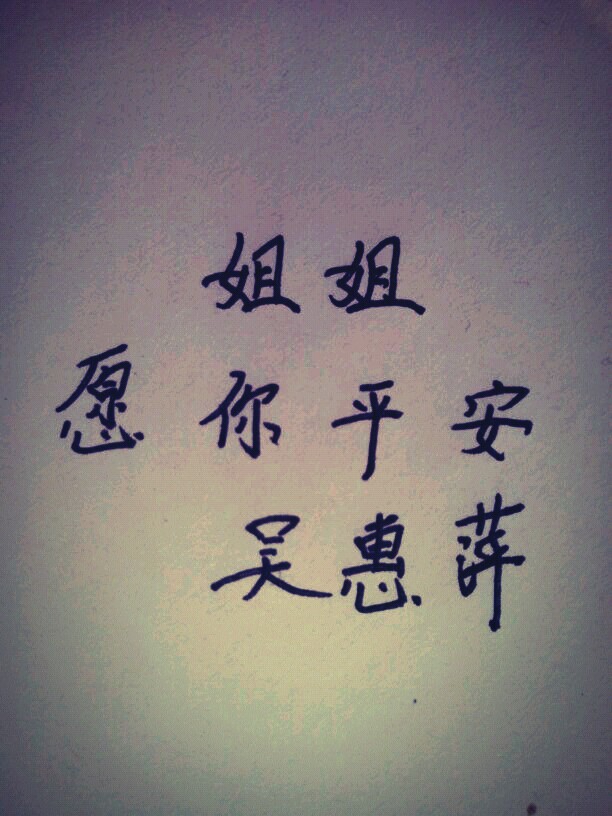 姐姐
愿你平安
吴惠萍